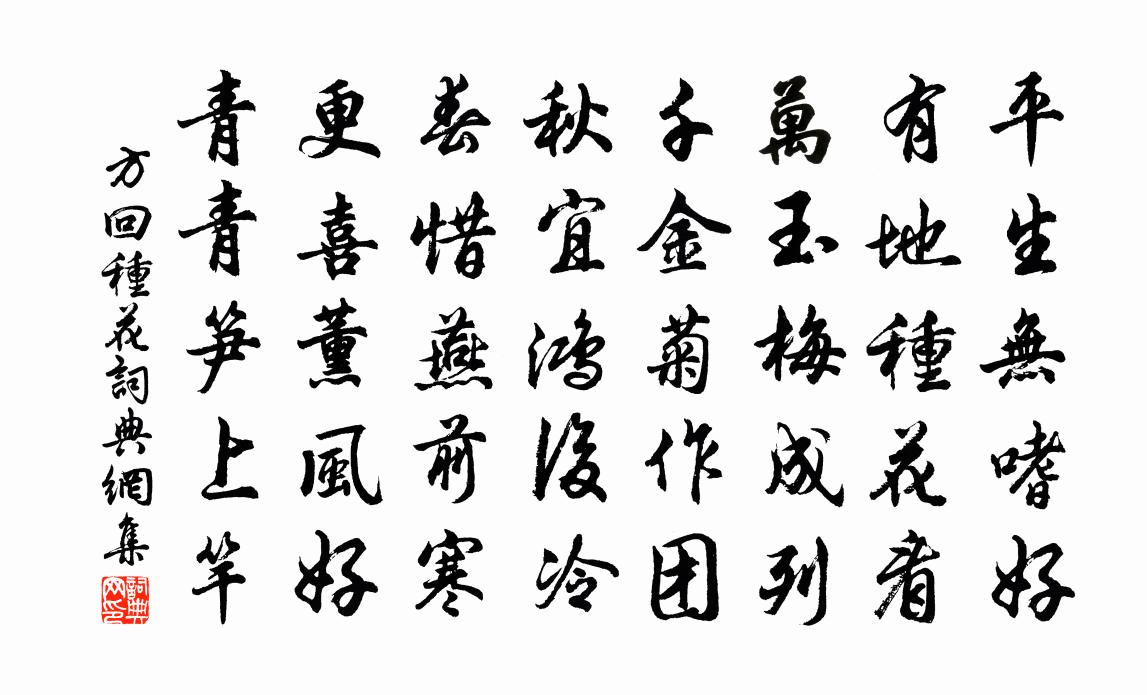 平生無嗜好
有地種花看
萬玉梅成列
千金菊作团
秋宜鴻後冷
春惜燕前寒
更喜薰風好
青青笋上竿
方回種花詞典網集
詞典網印